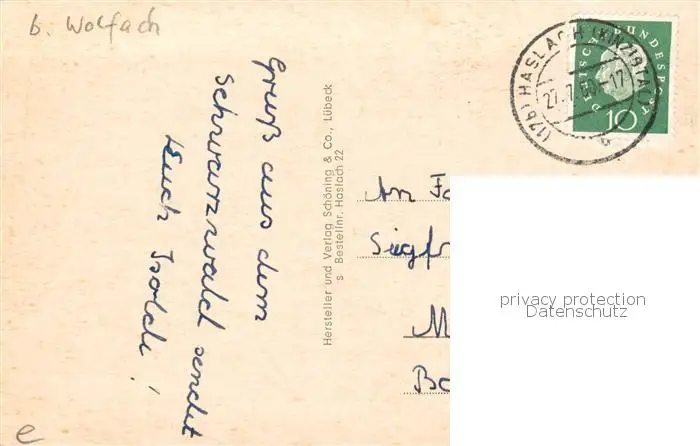 b. Wolfach
Gruß aus dem
Schwarzwald sendet
Euch Isolde!
Hersteller und Verlag Schöning & Co., Lübeck
s Bestellnr. Haslach 22
(17b) HASLACH (KINZIGTAL)
27.7.60.-17
DEUTSCHE BUNDESPOST
10
An Fa
Siegfr
M
Ba
privacy protection
Datenschutz
e